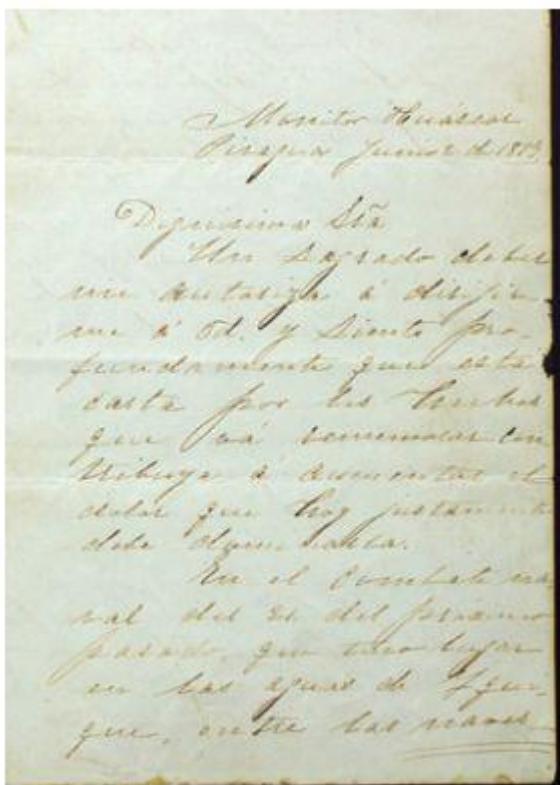 Monitor Huáscar
Pisagua Junio 2 de 1879
Dignisima Sra
Un sagrado deber
me autoriza á dirijir-
me á Ud. y siento pro-
fundamente que esta
carta por las luchas
que vá rememorar con
tribuya á aumentar el
dolor que hoy justamente
debe dominarla.
En el combate na
val del 21 del próximo
pasado, que tuvo lugar
en las aguas de Iqui-
que, entre las naves